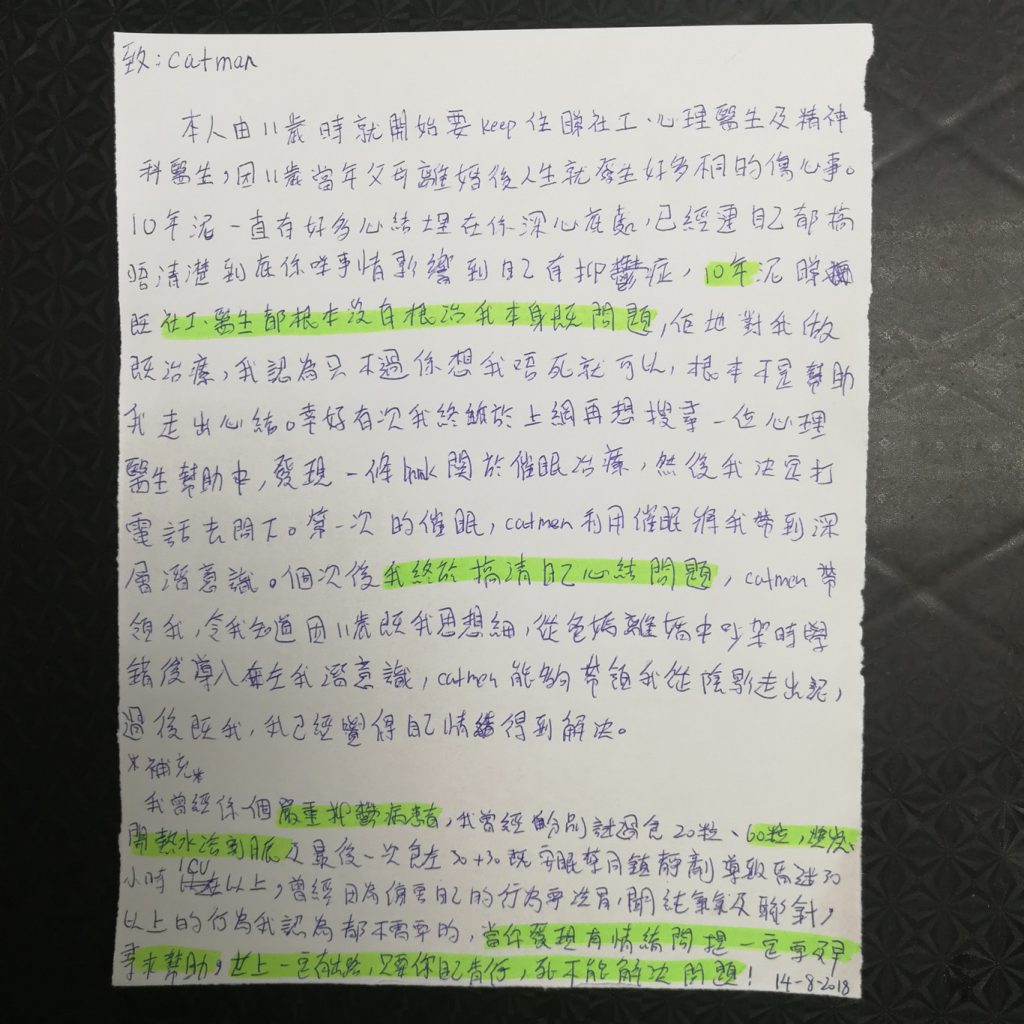 致：catman
本人由11歲時就開始要keep住睇社工、心理醫生及精神
科醫生，因11歲當年父母離婚後人生就發生好多相同的傷心事。
10年泥一直有好多心結埋在係深心底處，已經連自己都搞
唔清楚到底係咩事情影響到自己有抑鬱症，10年泥睇
既社工、醫生都根本沒有根治我本身既問題，佢地對我做
既治療，我認為只不過係想我唔死就可以，根本不是幫助
我走出心結。幸好有次我終於上網再想搜尋一位心理
醫生幫助中，發現一條link關於催眠治療，然後我決定打
電話去問下。第一次的催眠，catmen利用催眠將我帶到深
層潛意識。個次後我終於搞清自己心結問題，catmen帶
領我，令我知道因11歲既我思想細，從爸媽離婚中吵架時學
錯後導入在左我潛意識，catmen能夠帶領我從陰影走出泥，
過後既我，我已經覺得自己情緒得到解決。
*補充*
我曾經係一個嚴重抑鬱病患者，我曾經分別試過食20粒、60粒，
開熱水浴割脈及最後一次食左30+30既安眠藥同鎮靜劑導致昏迷30
小時ICU以上，曾經因為傷害自己的行為要洗胃，開純氧氣及聯針，
以上的行為我認為都不需要的，當你發現有情緒問題一定要及早
尋求幫助，世上一定有出路，只要你自己肯行，死不能解決問題！
14-8-2018